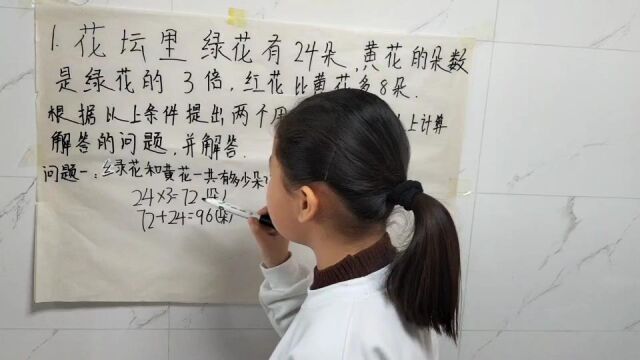 1. 花坛里绿花有24朵，黄花的朵数
是绿花的3倍，红花比黄花多8朵.
根据以上条件提出两个用 上计算
解答的问题，并解答.
问题一：绿花和黄花一共有多少朵?
24×3=72(朵)
72+24=96(朵)